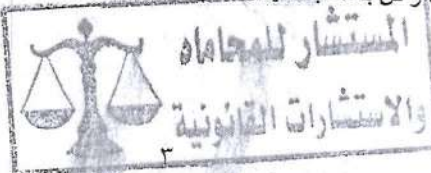 المستشار للمحاماه
والاستشارات القانونية
٣